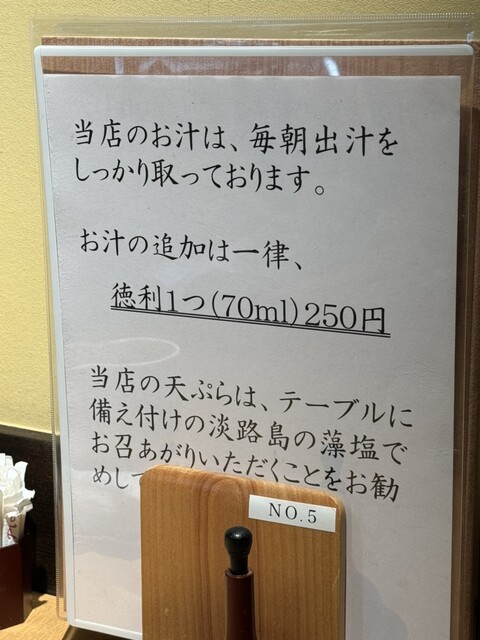 当店のお汁は、毎朝出汁を
しっかり取っております。
お汁の追加は一律、
徳利1つ(70ml)250円
当店の天ぷらは、テーブルに
備え付けの淡路島の藻塩で
お召あがりいただくことをお勧
めし
NO.5